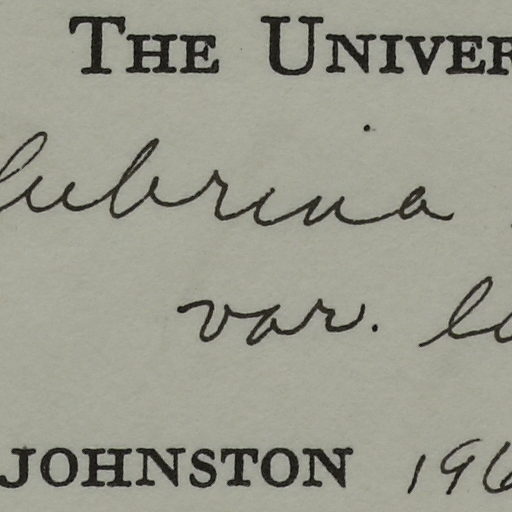 THE UNIVER
lubrina
var. lo
JOHNSTON 196